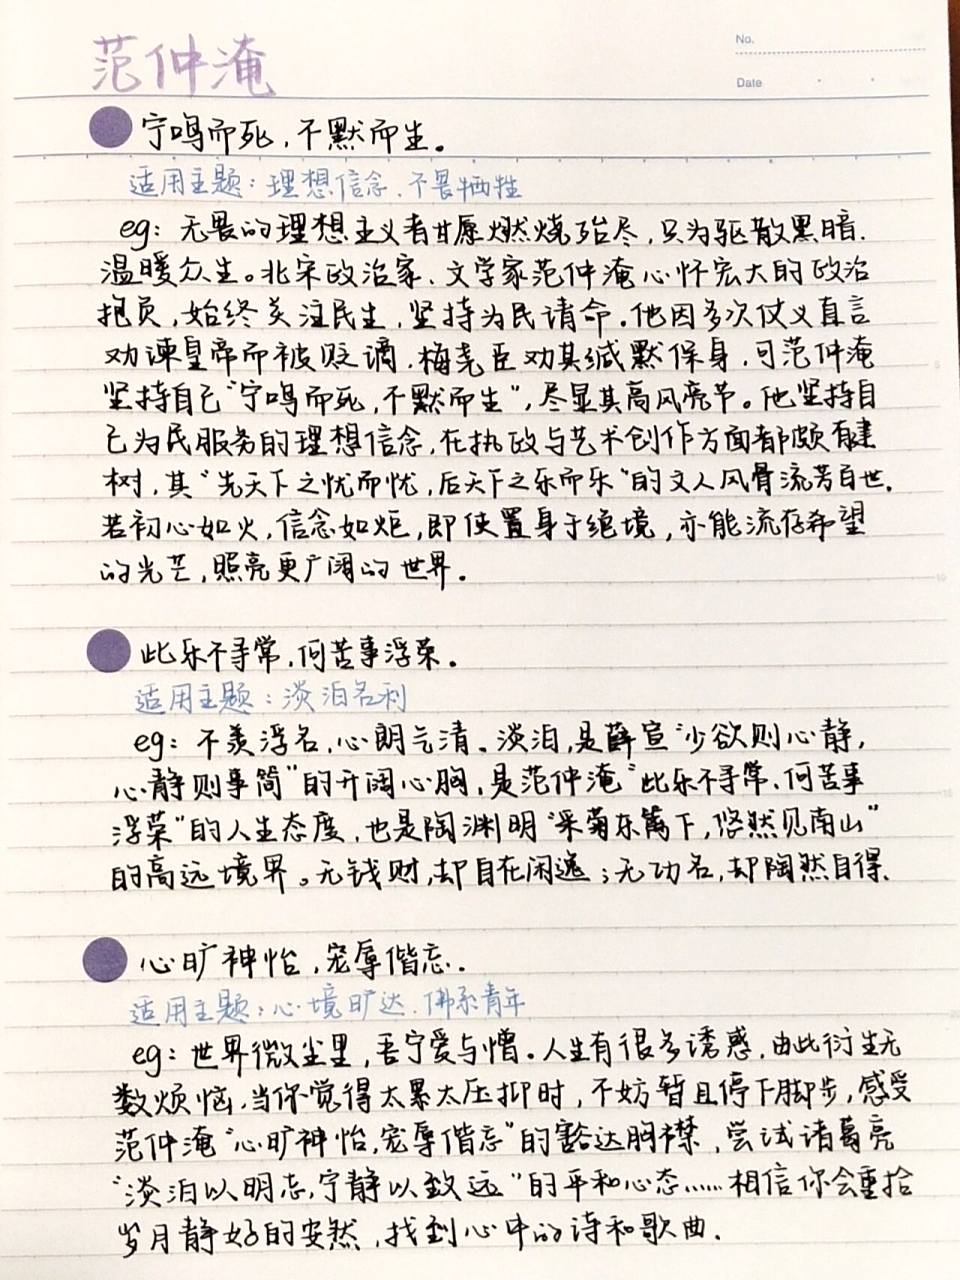 范仲淹
No.
Date
宁鸣而死,不默而生。
适用主题:理想信念、不畏牺牲
eg:无畏的理想主义者甘愿燃烧殆尽,只为驱散黑暗、
温暖众生。北宋政治家、文学家范仲淹心怀宏大的政治
抱负,始终关注民生,坚持为民请命。他因多次仗义直言
劝谏皇帝而被贬谪,梅尧臣劝其缄默保身,可范仲淹
坚持自己“宁鸣而死,不默而生”,尽显其高风亮节。他坚持自
己为民服务的理想信念,在执政与艺术创作方面都颇有建
树,其“先天下之忧而忧,后天下之乐而乐”的文人风骨流芳百世。
若初心如火,信念如炬,即使置身于绝境,亦能流存希望
的光芒,照亮更广阔的世界。
此乐不寻常,何苦事浮荣。
适用主题:淡泊名利
eg:不羡浮名,心朗气清。淡泊,是薛宣“少欲则心静,
心静则事简”的开阔心胸,是范仲淹“此乐不寻常、何苦事
浮荣”的人生态度,也是陶渊明“采菊东篱下,悠然见南山”
的高远境界。无钱财,却自在闲逸;无功名,却陶然自得。
心旷神怡,宠辱偕忘。
适用主题:心境旷达、佛系青年
eg:世界微尘里,吾宁爱与憎。人生有很多诱惑,由此衍生无
数烦恼,当你觉得太累太压抑时,不妨暂且停下脚步,感受
范仲淹“心旷神怡,宠辱偕忘”的豁达胸襟,尝试诸葛亮
“淡泊以明志,宁静以致远”的平和心态……相信你会重拾
岁月静好的安然,找到心中的诗和歌曲。